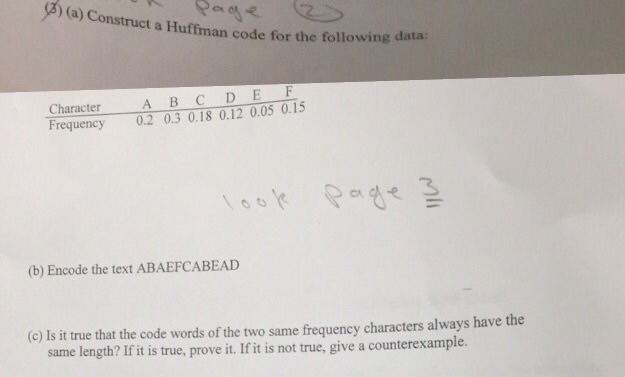 Page 2
(3) (a) Construct a Huffman code for the following data:
Character A B C D E F
Frequency 0.2 0.3 0.18 0.12 0.05 0.15
look page 3
(b) Encode the text ABAEFCABEAD
(c) Is it true that the code words of the two same frequency characters always have the
same length? If it is true, prove it. If it is not true, give a counterexample.